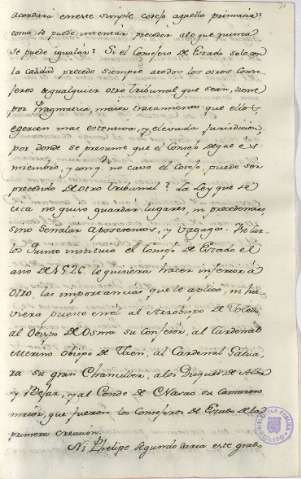 acordaria en este simple cotejo aquella primaria:
como se puede intentar preceder alo que quiera
se puede igualar? Si el Consejo de Estado solo en
la calidad precede siempre a todos los otros Con-
sejeros a qualquier otro Tribunal que sean, tiene
por Pragmatica, mayor tratamiento que ellos,
egercen mas extensiva, y elevada jurisdicion,
por donde se presume que el Consejo de que es
miembro, y aunq no caveel Consejo, puede ser
precedido de otro Tribunal? La Ley que se
cita no quiso guardar lugares, ni precedencias
sino señalar Aposentos, y Vagages. No Car-
los Quinto instituia el Consejo de Estado el
año de 1526 le quisieran hacer inferior à
otro las importancias que le aplicó, ni hu-
viera puesto en él al Arzobispo de Toledo,
al Obispo de Osma su Confesor, al Cardenal
Merino Obispo de Jaen, al Cardenal Gatina-
ra su gran Chanciller, a los Duques de Alva
y Bejar, y al Conde de Nasao su Camarero
mayor, que fueron los Consejeros de Estado de la
primera creacion.
Ni Phelipe Segundo daria este grado